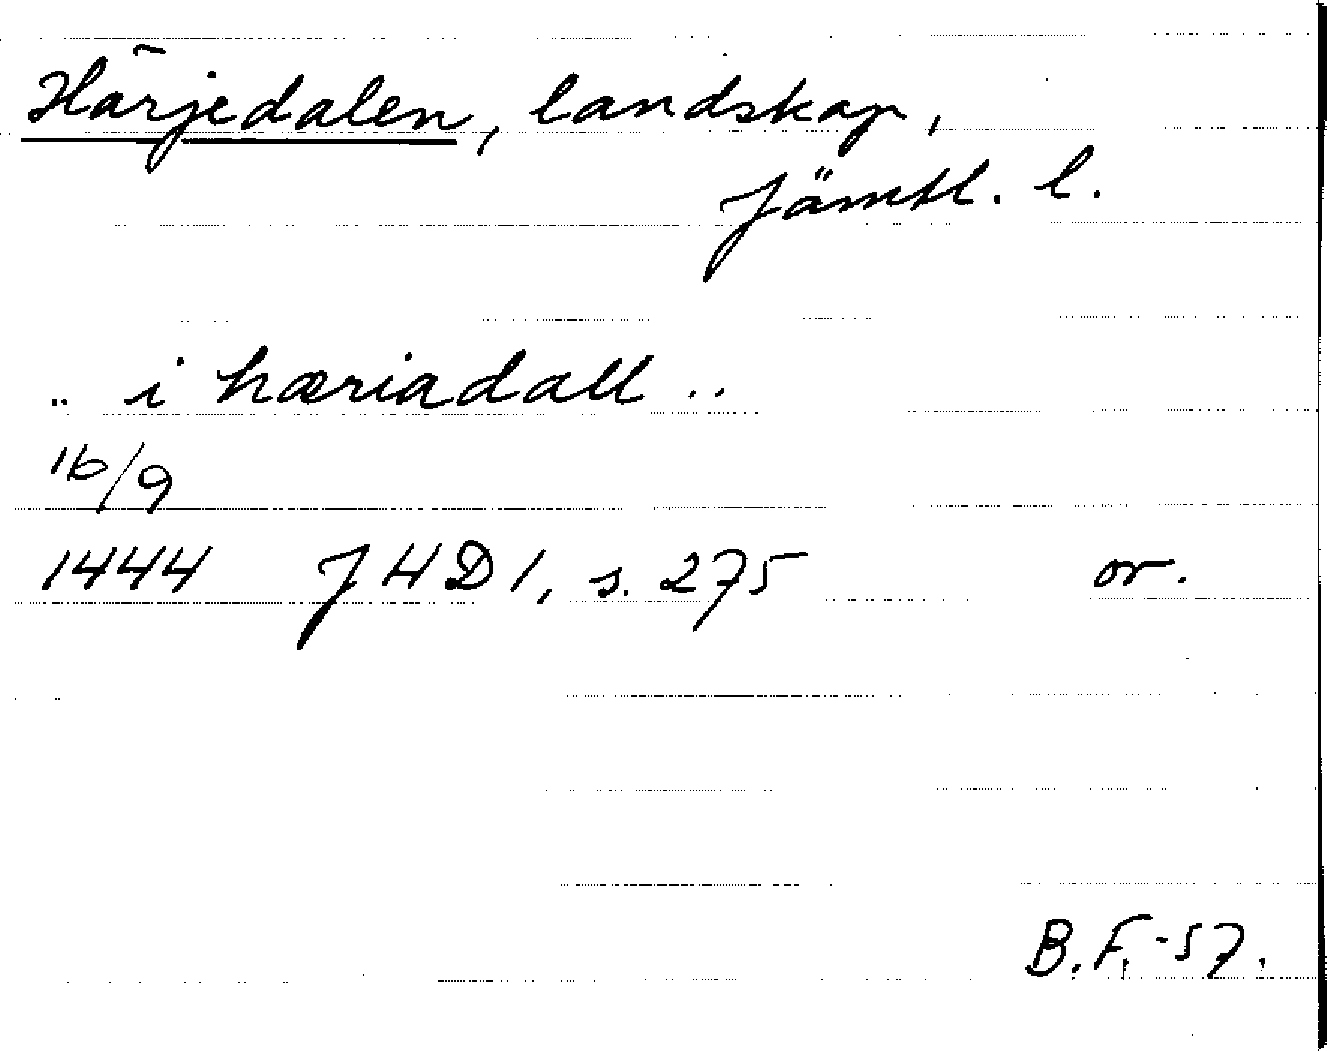 Härjedalen, landskap,
Jämtl. l.
.. i hæriadall ..
16/9
1444 JHD 1, s. 275 or.
B.F.-57.